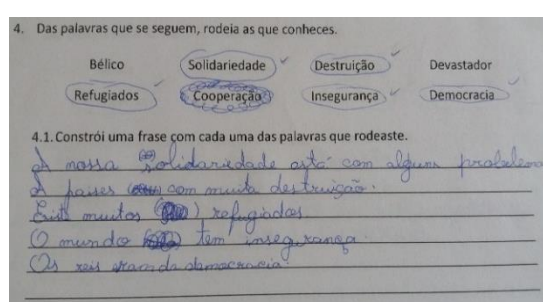 4. Das palavras que se seguem, rodeia as que conheces.
Bélico Solidariedade Destruição Devastador
Refugiados Cooperação Insegurança Democracia
4.1. Constrói uma frase com cada uma das palavras que rodeaste.
A nossa solidariedade está com alguns problema
À países com muita destruição.
Existe muitos refugiados.
O mundo tem insegurança
Os reis eram da democracia.